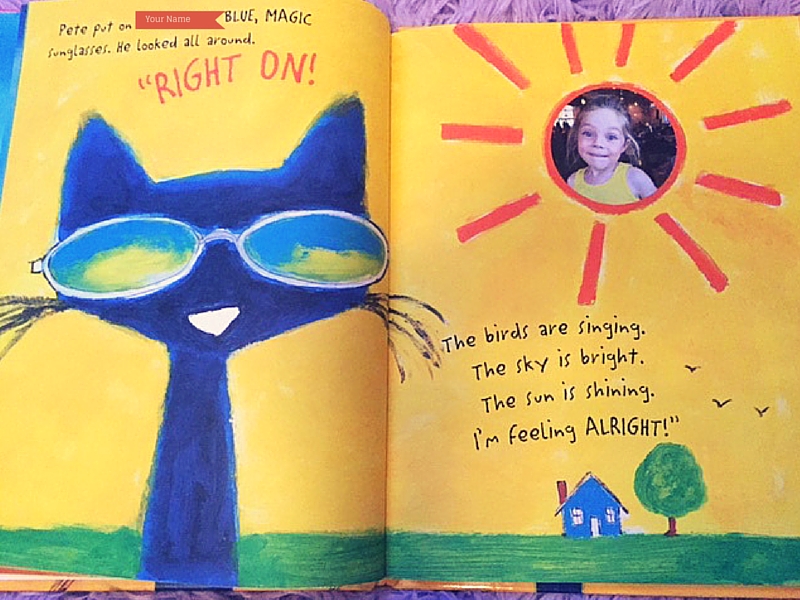 Pete put on Your Name BLUE, MAGIC
sunglasses. He looked all around.
"RIGHT ON!
The birds are singing.
The sky is bright.
The sun is shining.
I'm feeling ALRIGHT!"